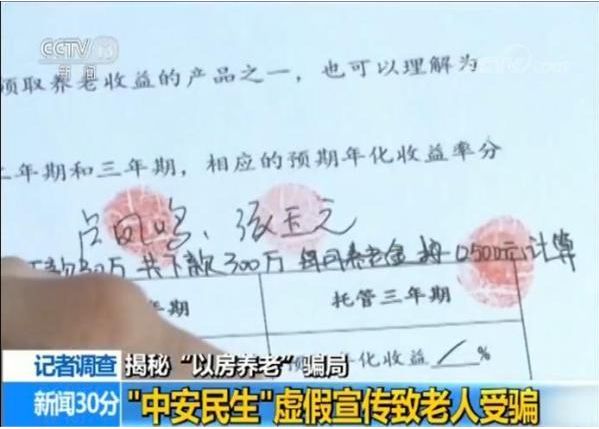 CCTV 13
新闻
领取养老收益的产品之一，也可以理解为
年期和三年期，相应的预期年化收益率分
张玉元
万 共下款300万 每月养老金 按 10500元计算
托管三年期
年化收益 / %
记者调查 揭秘“以房养老”骗局
新闻30分 "中安民生"虚假宣传致老人受骗